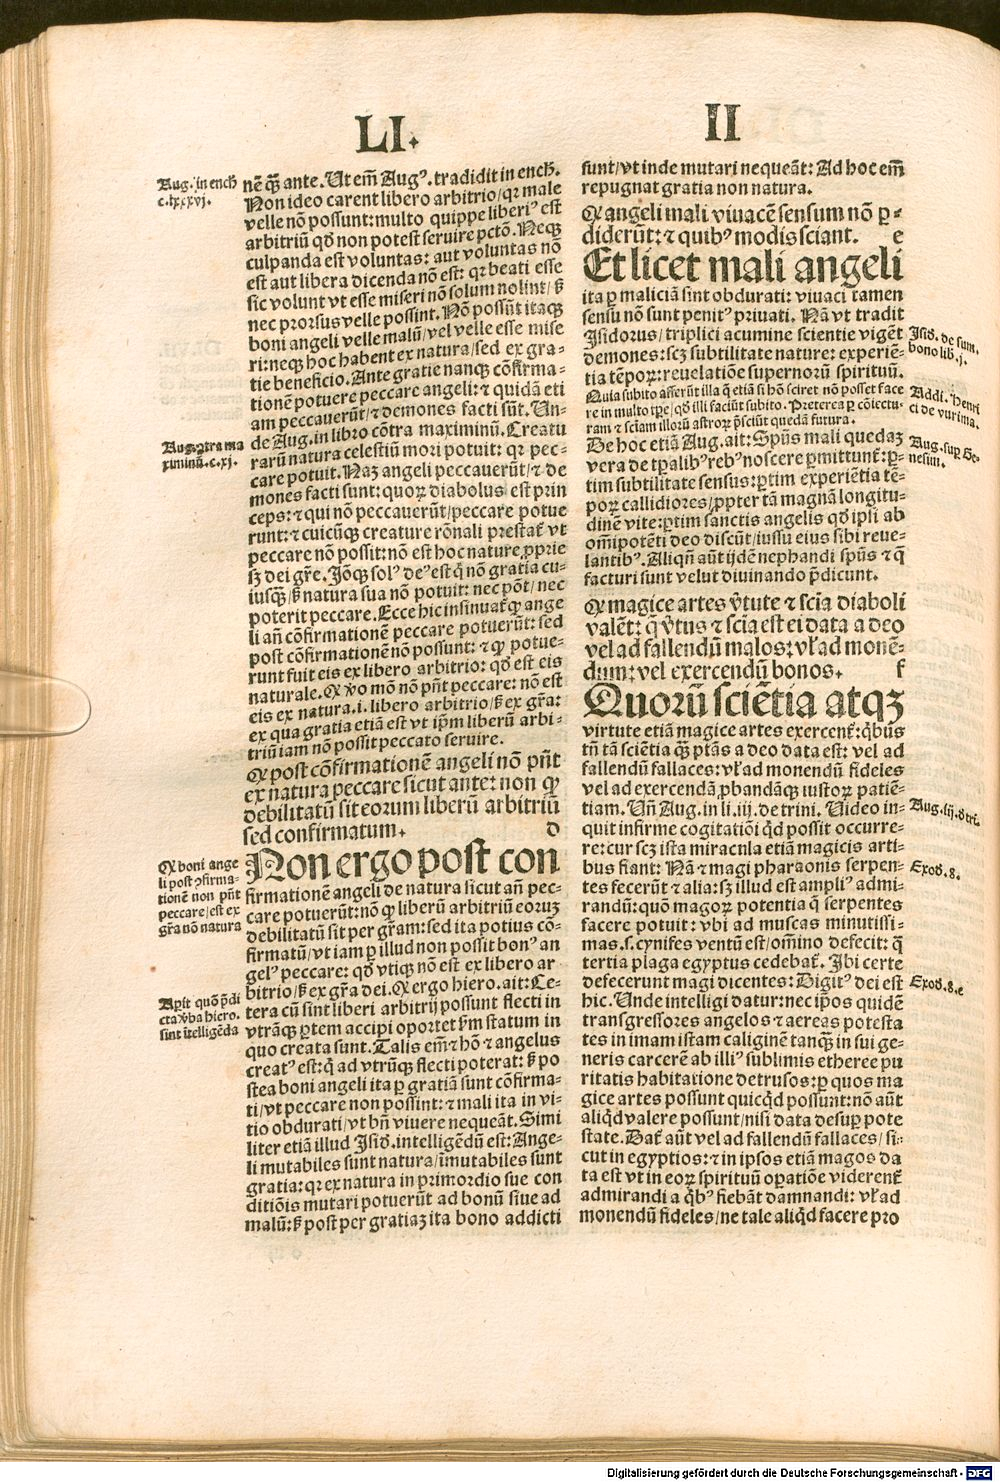 LI.
II
Aug. in ench
c. lxxxvj.
nē q̄ȝ ante. Ut em̄ Augꝰ. tradidit in ench.
Non ideo carent libero arbitrio/qꝛ male
velle nō possunt: multo quippe liberiꝰ est
arbitriū qd̄ non potest seruire pctō. Neqȝ
culpanda est voluntas: aut voluntas nō
est aut libera dicenda nō est: qꝛ beati esse
sic volunt vt esse miseri nō solum nolint/ sȝ
nec prorsus velle possint. Nō possūt itaqȝ
boni angeli velle malū/vel velle esse mise
ri: neqȝ hoc habent ex natura/sed ex gra⸗
tie beneficio. Ante gratie nanqȝ cōfirma⸗
tionē potuere peccare angeli: ⁊ quidā eti
am peccauerūt/⁊ demones facti sūt. Un⸗
de Aug. in libro cōtra maximinū. Creatu
rarū natura celestiū mori potuit: qꝛ pec⸗
care potuit. Naȝ angeli peccauerūt/⁊ de
mones facti sunt: quoꝝ diabolus est prin
ceps: ⁊ qui nō peccauerūt/peccare potue
runt: ⁊ cuicūqȝ creature rōnali prestat̄ vt
peccare nō possit: nō est hoc nature ꝓprie
sȝ dei gr̄e. Jōqȝ solꝰ deꝰ est q̄ nō gratia cu⸗
iusqȝ/sȝ natura sua nō potuit: nec pōt/ nec
poterit peccare. Ecce hic insinuat̄ ꝙ ange
li an̄ cōfirmationē peccare potuerūt: sed
post cōfirmationē nō possunt: ⁊ ꝙ potue⸗
runt fuit eis ex libero arbitrio: qd̄ est eis
naturale. Ꝙ v̄o mō nō pn̄t peccare: nō est
eis ex natura.i. libero arbitrio/sȝ ex gr̄a:
ex qua gratia etiā est vt ip̄m liberū arbi⸗
triū iam nō possit peccato seruire.
Aug. ꝯtra ma
ximinū. c. xj.
Ꝙ post cōfirmationē angeli nō pn̄t
ex natura peccare sicut ante: non ꝙ
debilitatū sit eorum liberū arbitriū
sed confirmatum. d
Ꝙ boni ange
li post ꝯfirma⸗
tionē non pn̄t
peccare/est ex
gr̄a nō natura
Non ergo post con
firmationē angeli de natura sicut an̄ pec⸗
care potuerūt: nō ꝙ liberū arbitriū eoruȝ
debilitatū sit per gr̄am: sed ita potius cō⸗
firmatū/vt iam ꝑ illud non possit bonꝰ an
gelꝰ peccare: qd̄ vtiqȝ nō est ex libero ar
bitrio/sȝ ex gr̄a dei. Ꝙ ergo hiero. ait: Ce⸗
tera cū sint liberi arbitrij possunt flecti in
vtrāqȝ ꝑtem accipi oportet s̄m statum in
quo creata sunt. Talis em̄ ⁊ hō ⁊ angelus
creatꝰ est: q̄ ad vtrūqȝ flecti poterat: sȝ po
stea boni angeli ita ꝑ gratiā sunt cōfirma⸗
ti/vt peccare non possint: ⁊ mali ita in vi⸗
tio obdurati/vt bn̄ viuere nequeāt. Simi
liter etiā illud Jsid̄. intelligēdū est: Ange⸗
li mutabiles sunt natura/īmutabiles sunt
gratia: qꝛ ex natura in primordio sue con
ditiōis mutari potuerūt ad bonū siue ad
malū: sȝ post per gratiaȝ ita bono addicti
Apit quō p̄di
cta v̄ba hiero.
sint ītelligēda
sunt/vt inde mutari nequeāt: Ad hoc em̄
repugnat gratia non natura.
Ꝙ angeli mali viuacē sensum nō ꝑ⸗
diderūt: ⁊ quibꝰ modis sciant. e
Et licet mali angeli
ita ꝑ maliciā sint obdurati: viuaci tamen
sensu nō sunt penitꝰ priuati. Nā vt tradit
Jsidorus/ triplici acumine scientie vigēt
demones: scȝ subtilitate nature: experiē⸗
tia tēpoꝝ: reuelatiōe supernorū spirituū.
Jsid̄. de sum.
bono lib. j.
Quia subito afferūt illa q̄ etiā si hō sciret nō posset face
re in multo tꝑe/ qd̄ illi faciūt subito. Preterea ꝑ cōiectu⸗
ram ⁊ sciam illorū astroꝝ p̄sciūt quedā futura.
Addi. Henri
ci de vurima.
De hoc etiā Aug. ait: Spūs mali quedaȝ
vera de tꝑalibꝰ rebꝰ noscere ꝑmittunt̄: ꝑ⸗
tim subtilitate sensus: ꝑtim experiētia tē⸗
poꝝ callidiores/ꝓpter tā magnā longitu⸗
dinē vite: ꝑtim sanctis angelis qd̄ ipsi ab
om̄ipotēti deo discūt/iussu eius sibi reue⸗
lantibꝰ. Aliqn̄ aūt ijdē nephandi spūs ⁊ q̄
facturi sunt velut diuinando p̄dicunt.
Aug. suꝑ Ge⸗
nesim.
Ꝙ magice artes v̄tute ⁊ scīa diaboli
valēt: q̄ v̄tus ⁊ scīa est ei data a deo
vel ad fallendū malos: vl̄ ad monē⸗
dum: vel exercendū bonos. f
Quorū sciētia atqȝ
virtute etiā magice artes exercent̄: q̄bus
tn̄ tā sciētia qȝ ptās a deo data est: vel ad
fallendū fallaces: vl̄ ad monendū fideles
vel ad exercendā ꝓbandāqȝ iustoꝝ patiē⸗
tiam. Un̄ Aug. in li. iij. de trini. Uideo in⸗
quit infirme cogitatiōi qd̄ possit occurre⸗
re: cur scȝ ista miracula etiā magicis arti⸗
bus fiant: Nā ⁊ magi pharaonis serpen⸗
tes fecerūt ⁊ alia: sȝ illud est ampliꝰ admi⸗
randū: quō magoꝝ potentia q̄ serpentes
facere potuit: vbi ad muscas minutissi⸗
mas.s. cynifes ventū est/om̄ino defecit: q̄
tertia plaga egyptus cedebat̄. Jbi certe
defecerunt magi dicentes: Digitꝰ dei est
hic. Unde intelligi datur: nec ip̄os quidē
transgressores angelos ⁊ aereas potesta
tes in imam istam caliginē tanqȝ in sui ge⸗
neris carcerē ab illiꝰ sublimis etheree pu
ritatis habitatione detrusos: ꝑ quos ma
gice artes possunt quicqd̄ possunt: nō aūt
aliqd̄ valere possunt/nisi data desuꝑ pote
state. Dat̄ aūt vel ad fallendū fallaces/ si⸗
cut in egyptios: ⁊ in ipsos etiā magos da
ta est vt in eoꝝ spirituū oꝑatiōe viderent̄
admirandi a q̄bꝰ fiebāt damnandi: vl̄ ad
monendū fideles/ne tale aliqd̄ facere pro
Aug. iij. d̄ tri.
Exod̄. 8.
Exod̄. 8. e
Digitalisierung gefördert durch die Deutsche Forschungsgemeinschaft - DFG